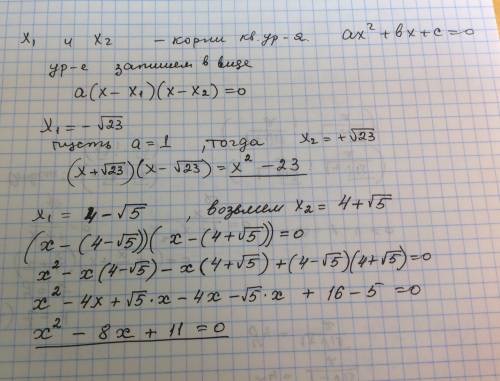 x₁ и x₂ — корни кв. ур-я. ax² + bx + c = 0
ур-е запишем в виде
a(x - x₁)(x - x₂) = 0
x₁ = -√23
пусть a = 1, тогда x₂ = +√23
(x + √23)(x - √23) = x² - 23
x₁ = 4 - √5, возьмем x₂ = 4 + √5
(x - (4 - √5))(x - (4 + √5)) = 0
x² - x(4 - √5) - x(4 + √5) + (4 - √5)(4 + √5) = 0
x² - 4x + √5·x - 4x - √5·x + 16 - 5 = 0
x² - 8x + 11 = 0